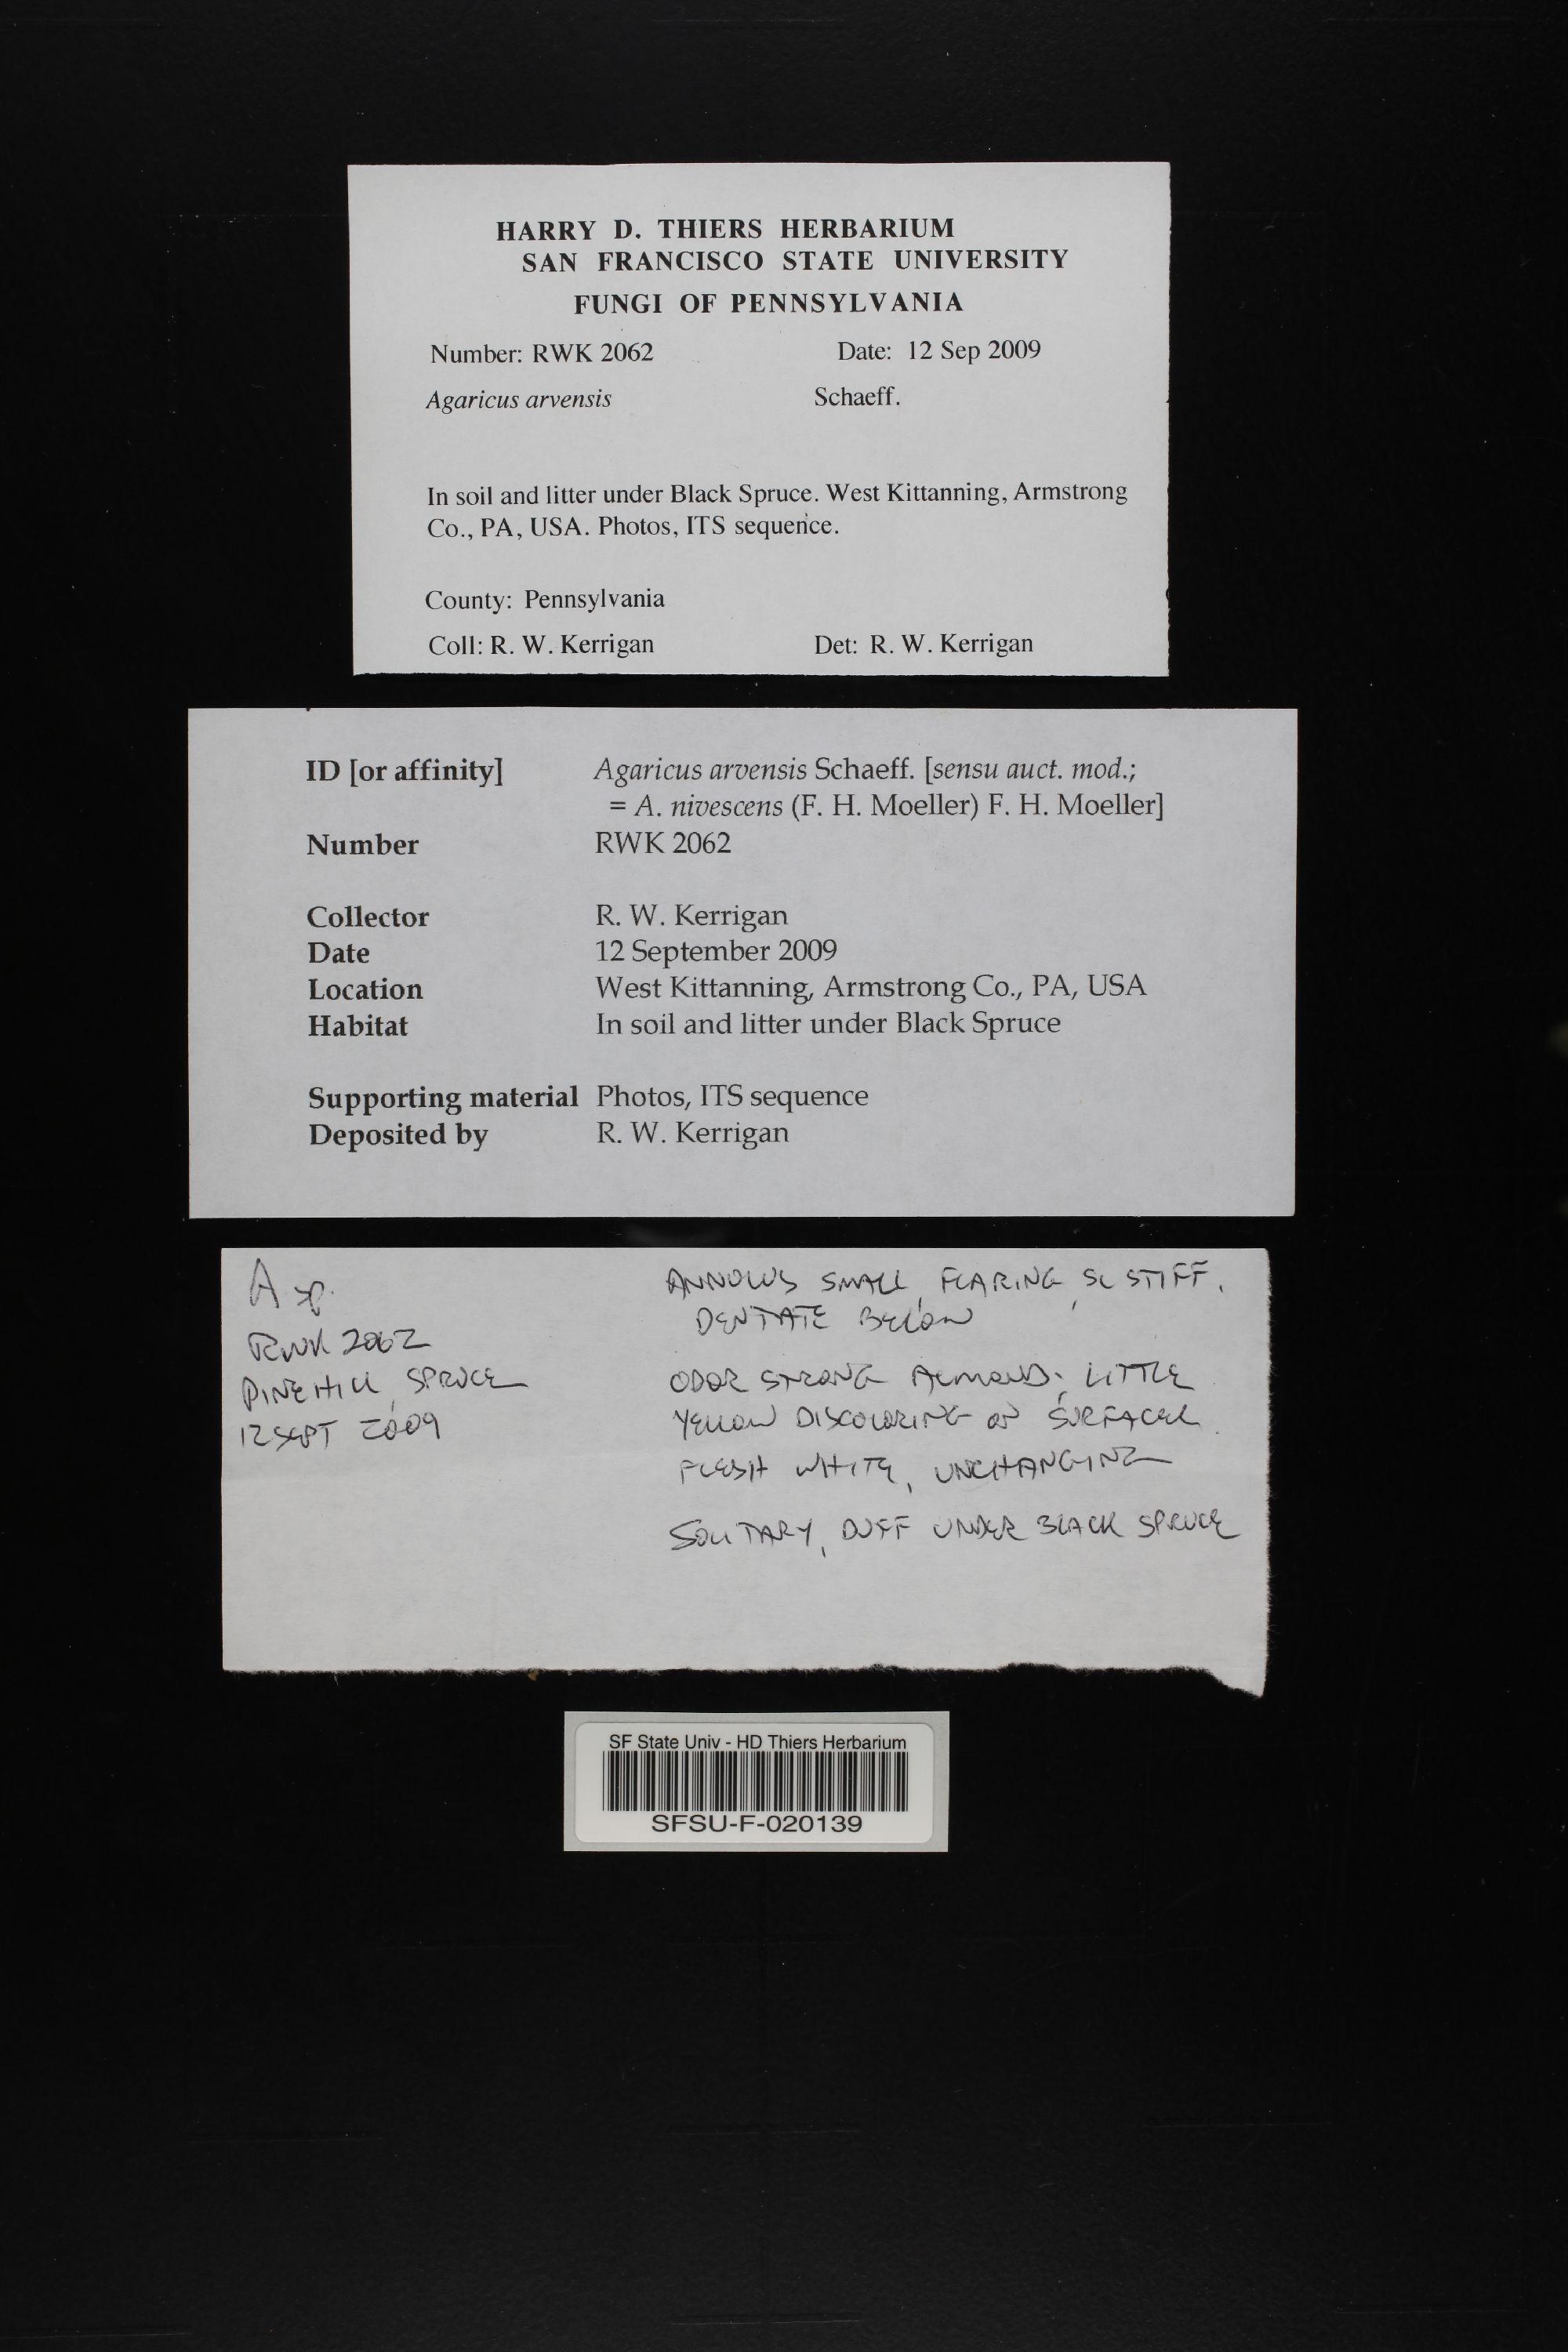 HARRY D. THIERS HERBARIUM
SAN FRANCISCO STATE UNIVERSITY
FUNGI OF PENNSYLVANIA
Number: RWK 2062 Date: 12 Sep 2009
Agaricus arvensis Schaeff.
In soil and litter under Black Spruce. West Kittanning, Armstrong
Co., PA, USA. Photos, ITS sequence.
County: Pennsylvania
Coll: R. W. Kerrigan Det: R. W. Kerrigan
ID [or affinity] Agaricus arvensis Schaeff. [sensu auct. mod.;
= A. nivescens (F. H. Moeller) F. H. Moeller]
Number RWK 2062
Collector R. W. Kerrigan
Date 12 September 2009
Location West Kittanning, Armstrong Co., PA, USA
Habitat In soil and litter under Black Spruce
Supporting material Photos, ITS sequence
Deposited by R. W. Kerrigan
A sp.
RWK 2062
PINE HILL, SPRUCE
12 SEPT 2009
ANNULUS SMALL, FLARING, SL STIFF,
DENTATE BELOW
ODOR STRONG ALMOND; LITTLE
YELLOW DISCOLORING ON SURFACES.
FLESH WHITE, UNCHANGING
SOLITARY, DUFF UNDER BLACK SPRUCE
SF State Univ - HD Thiers Herbarium
SFSU-F-020139